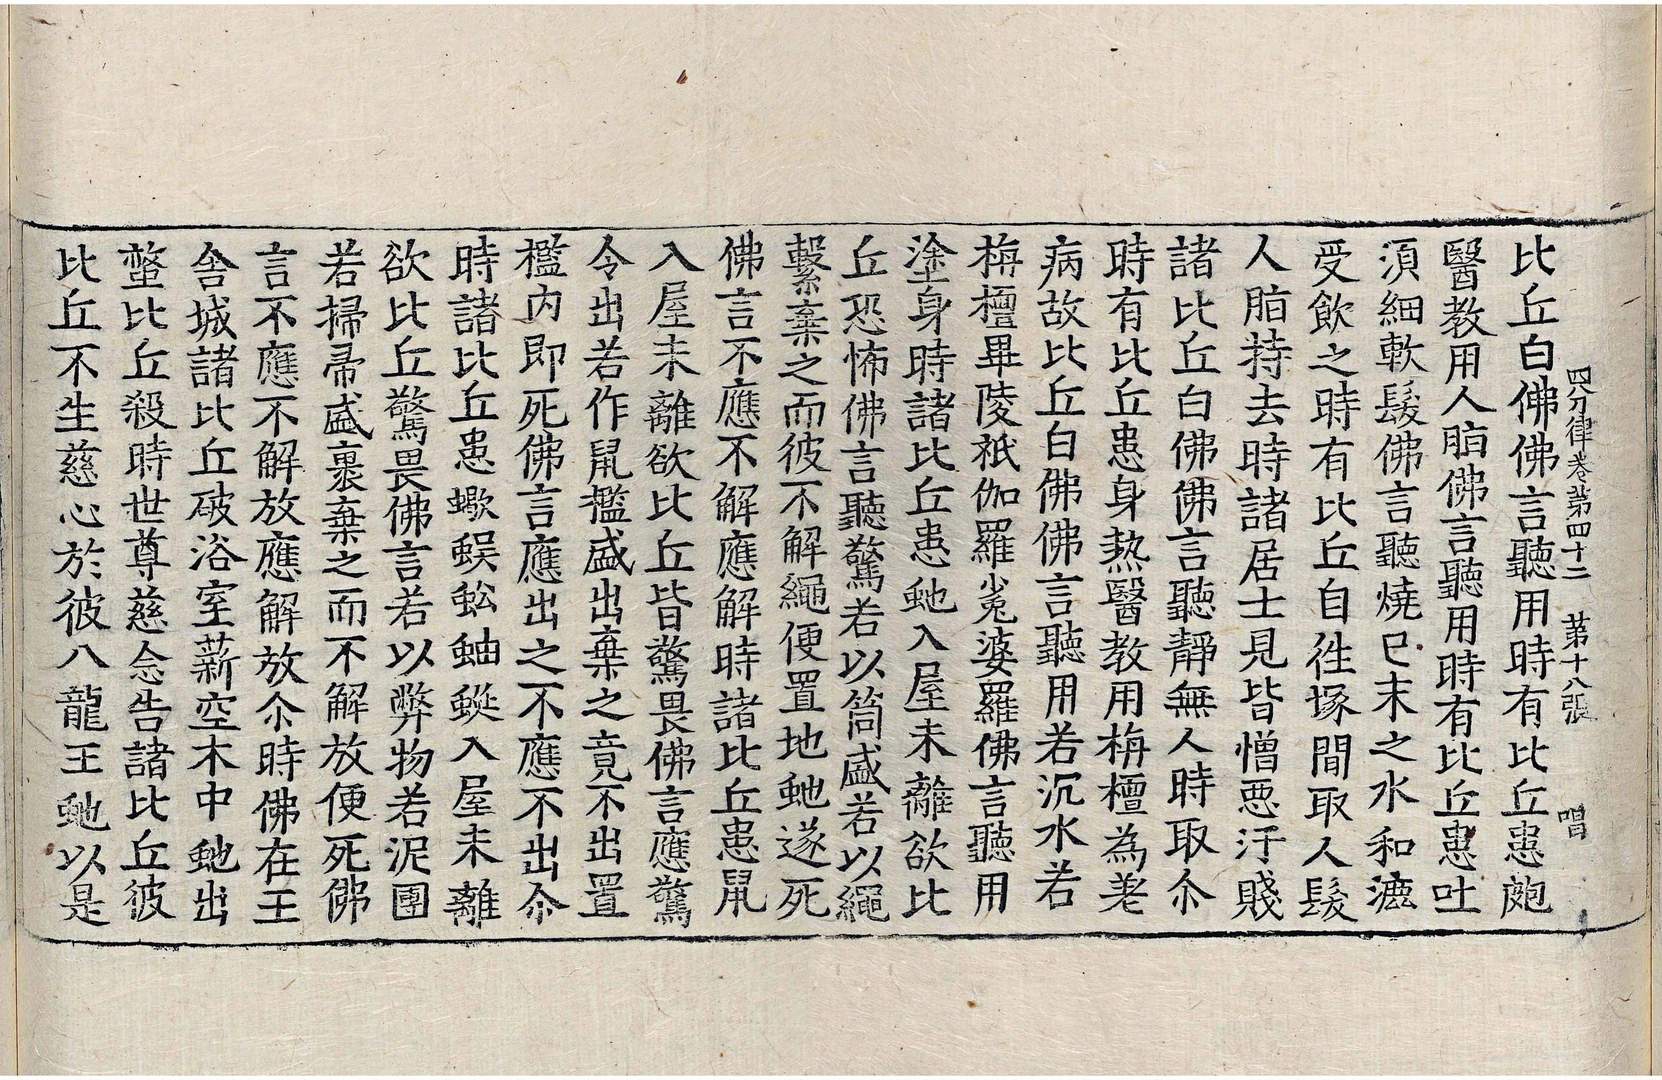 四分律卷第四十二　第十八張　唱
比丘白佛佛言聽用時有比丘患皰
醫教用人脂佛言聽用時有比丘患吐
須細軟髮佛言聽燒已末之水和漉
受飲之時有比丘自往塚間取人髮
人脂持去時諸居士見皆憎惡汙賤
諸比丘白佛佛言聽靜無人時取尒
時有比丘患身熱醫教用栴檀為差
病故比丘白佛佛言聽用若沉水若
栴檀畢陵祇伽羅㲋婆羅佛言聽用
塗身時諸比丘患虵入屋未離欲比
丘恐怖佛言聽驚若以筒盛若以繩
繫棄之而彼不解繩便置地虵遂死
佛言不應不解應解時諸比丘患鼠
入屋未離欲比丘皆驚畏佛言應驚
令出若作鼠檻盛出棄之竟不出置
檻內即死佛言應出之不應不出尒
時諸比丘患蠍蜈蚣蚰蜒入屋未離
欲比丘驚畏佛言若以弊物若泥團
若掃帚盛裹棄之而不解放便死佛
言不應不解放應解放尒時佛在王
舍城諸比丘破浴室薪空木中虵出
螫比丘殺時世尊慈念告諸比丘彼
比丘不生慈心於彼八龍王虵以是